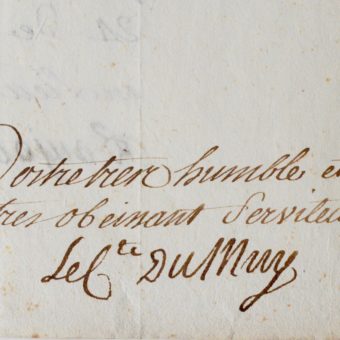 Votre tres humble et
tres obeissant Serviteu
Le C.te Du Muy